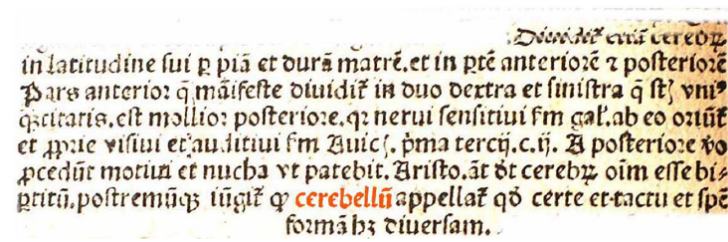 Diuidit̃ etiã cerebꝝ
in latitudine sui ꝑ piã et durã matrẽ.et in ꝑtẽ anteriorẽ ⁊ posteriorẽ
Pars anterior q̃ mãifeste diuidit̃ in duo dextra et sinistra q̃ st̃ vniꝰ
q̃titatis.est mollior posteriore.qꝛ nerui sensitiui ẜm gal̃.ab eo oriũt̃
et ꝓprie visiui et auditiui ẜm Auic̃. pͥma tercij.c.ij. A posteriore ꝟo
ꝓcedũt motiui et nucha vt patebit. Aristo.ãt dt̃ cerebꝝ oĩm esse bi⸗
ꝑtitũ.postremũqꝫ iũgit̃ ꝙ cerebellũ appellat̃ qđ certe et tactu et spẽ
formã hꝫ diuersam.